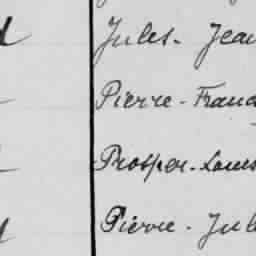 Jules - Jean
Pierre - Franc
Prosper - Louis
Pierre - Jule